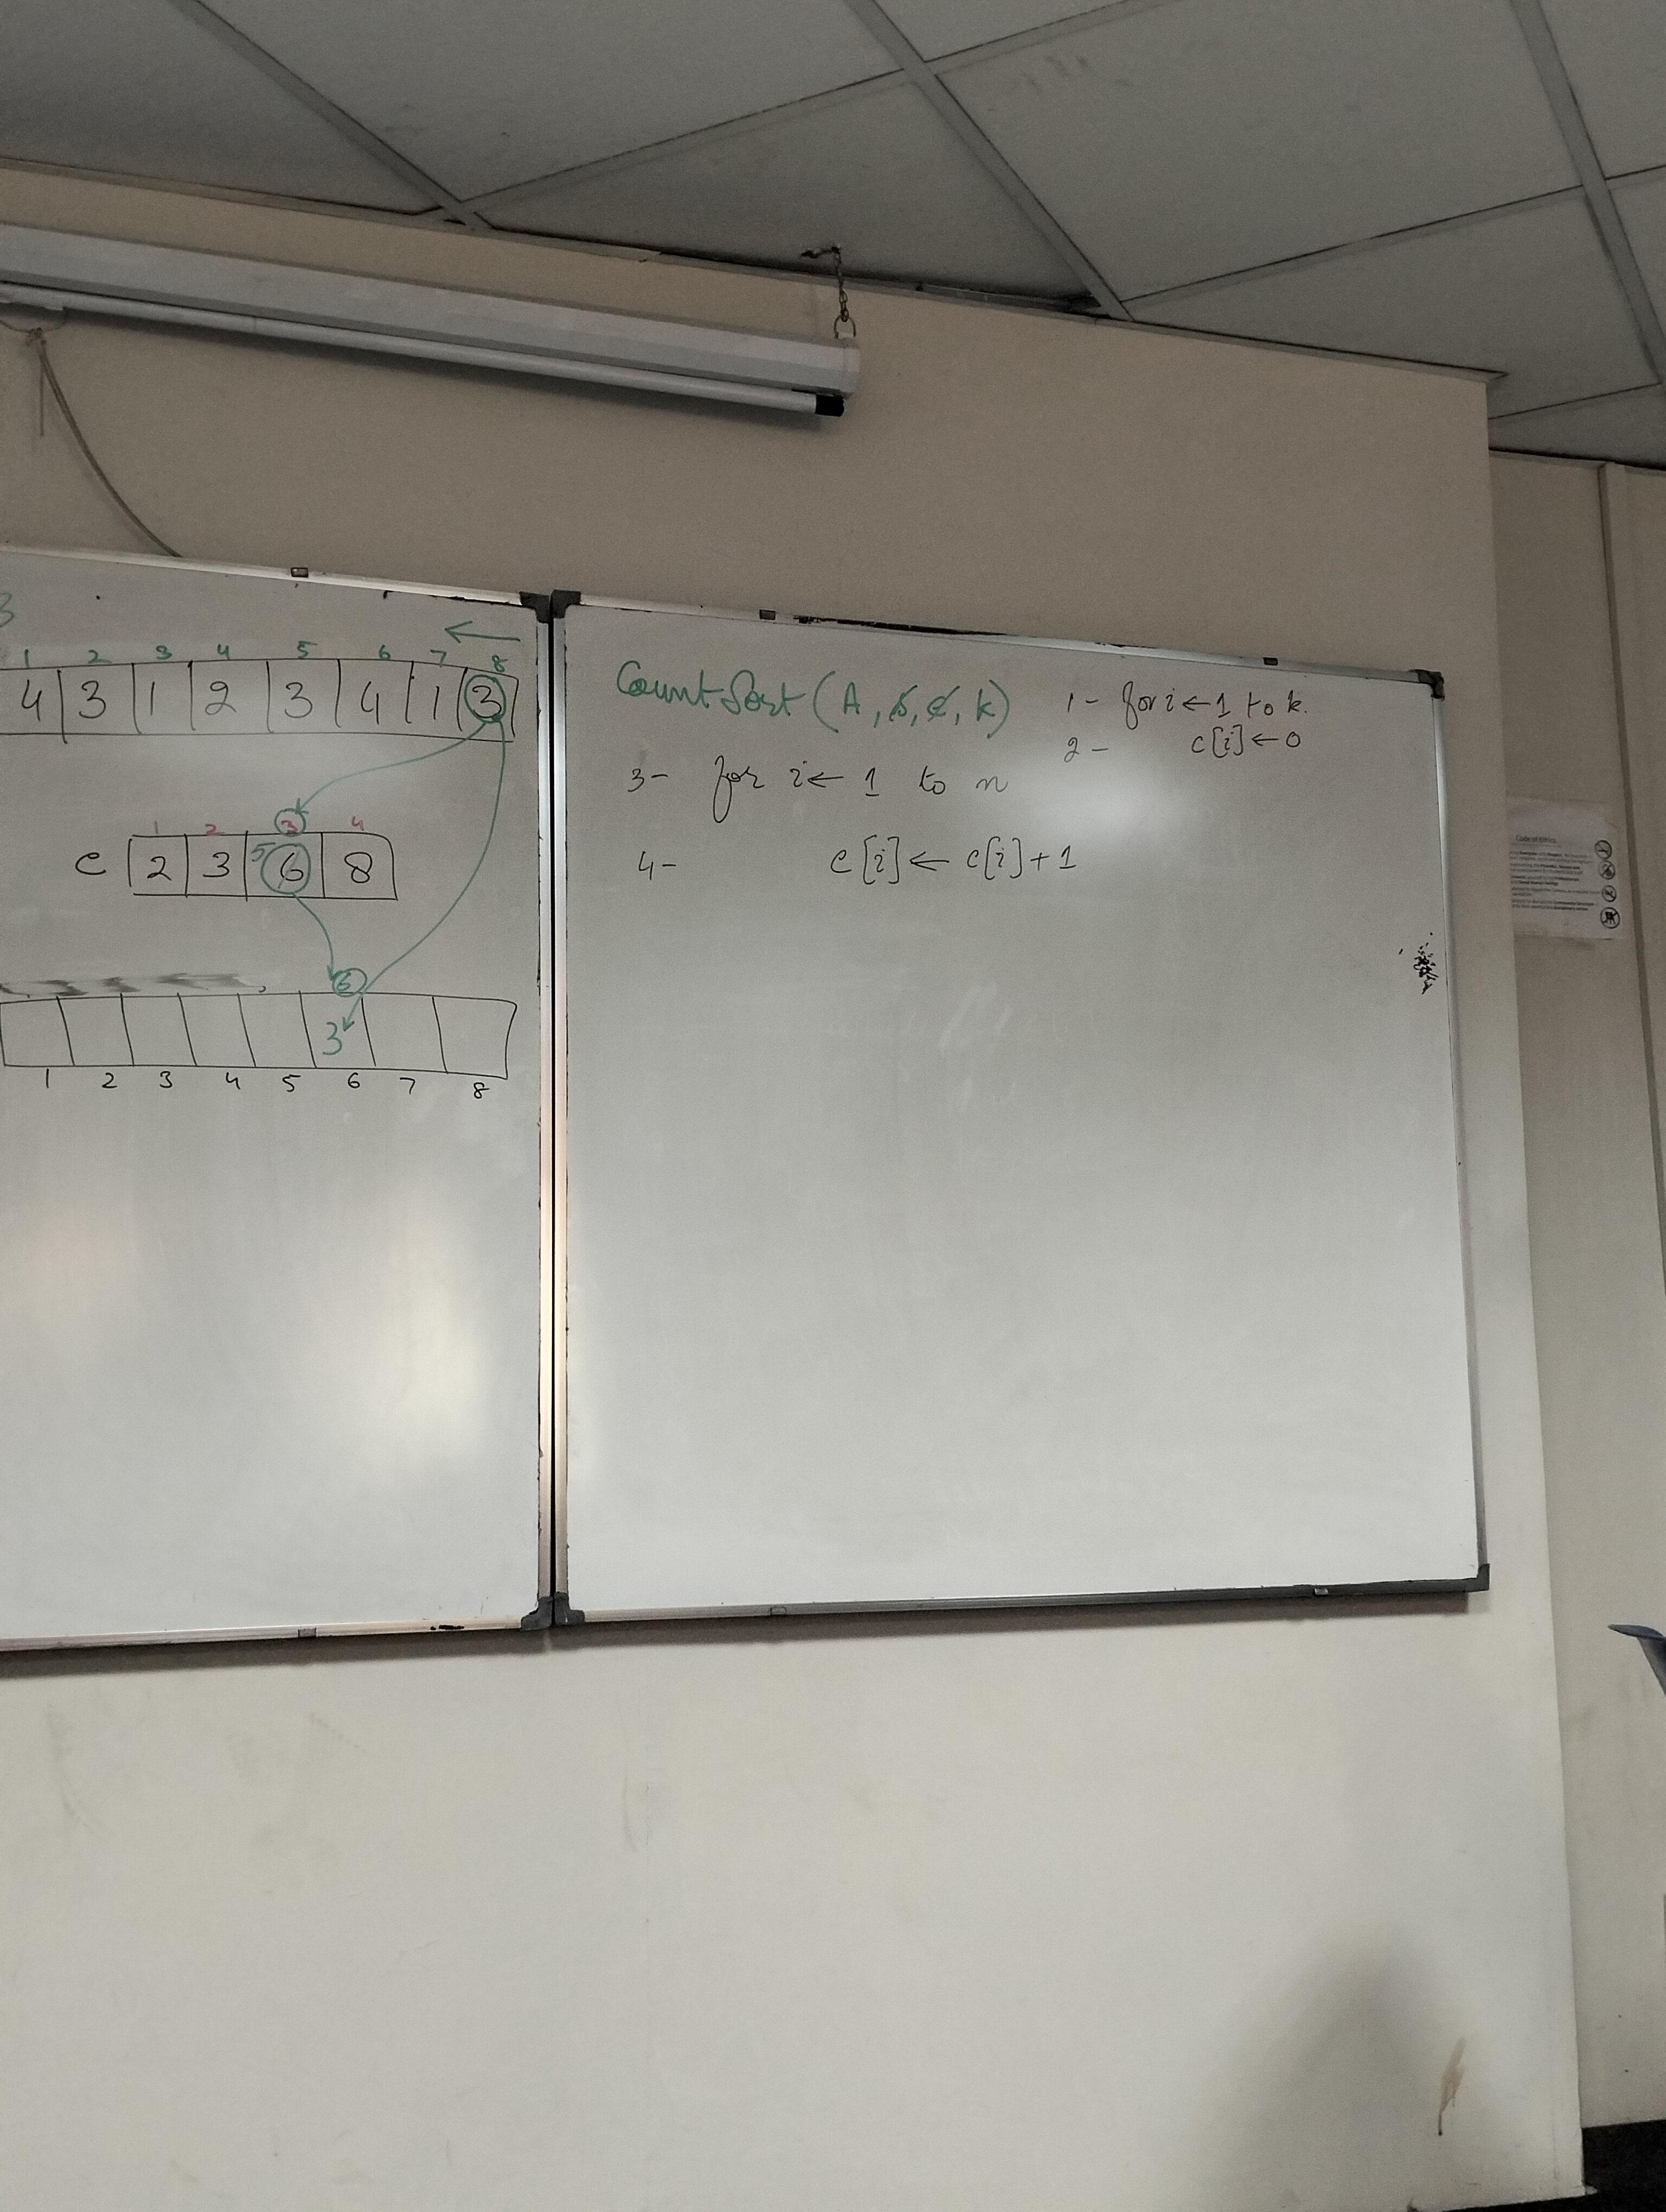 3
1 2 3 4 5 6 7 8
4 3 1 2 3 4 1 3
1 2 3 4
c 2 3 5 6 8
6
3
1 2 3 4 5 6 7 8
Count Sort (A, B, C, k)
1- for i ← 1 to k.
2- c[i] ← 0
3- for i ← 1 to n
4- c[i] ← c[i] + 1
Code of Ethics